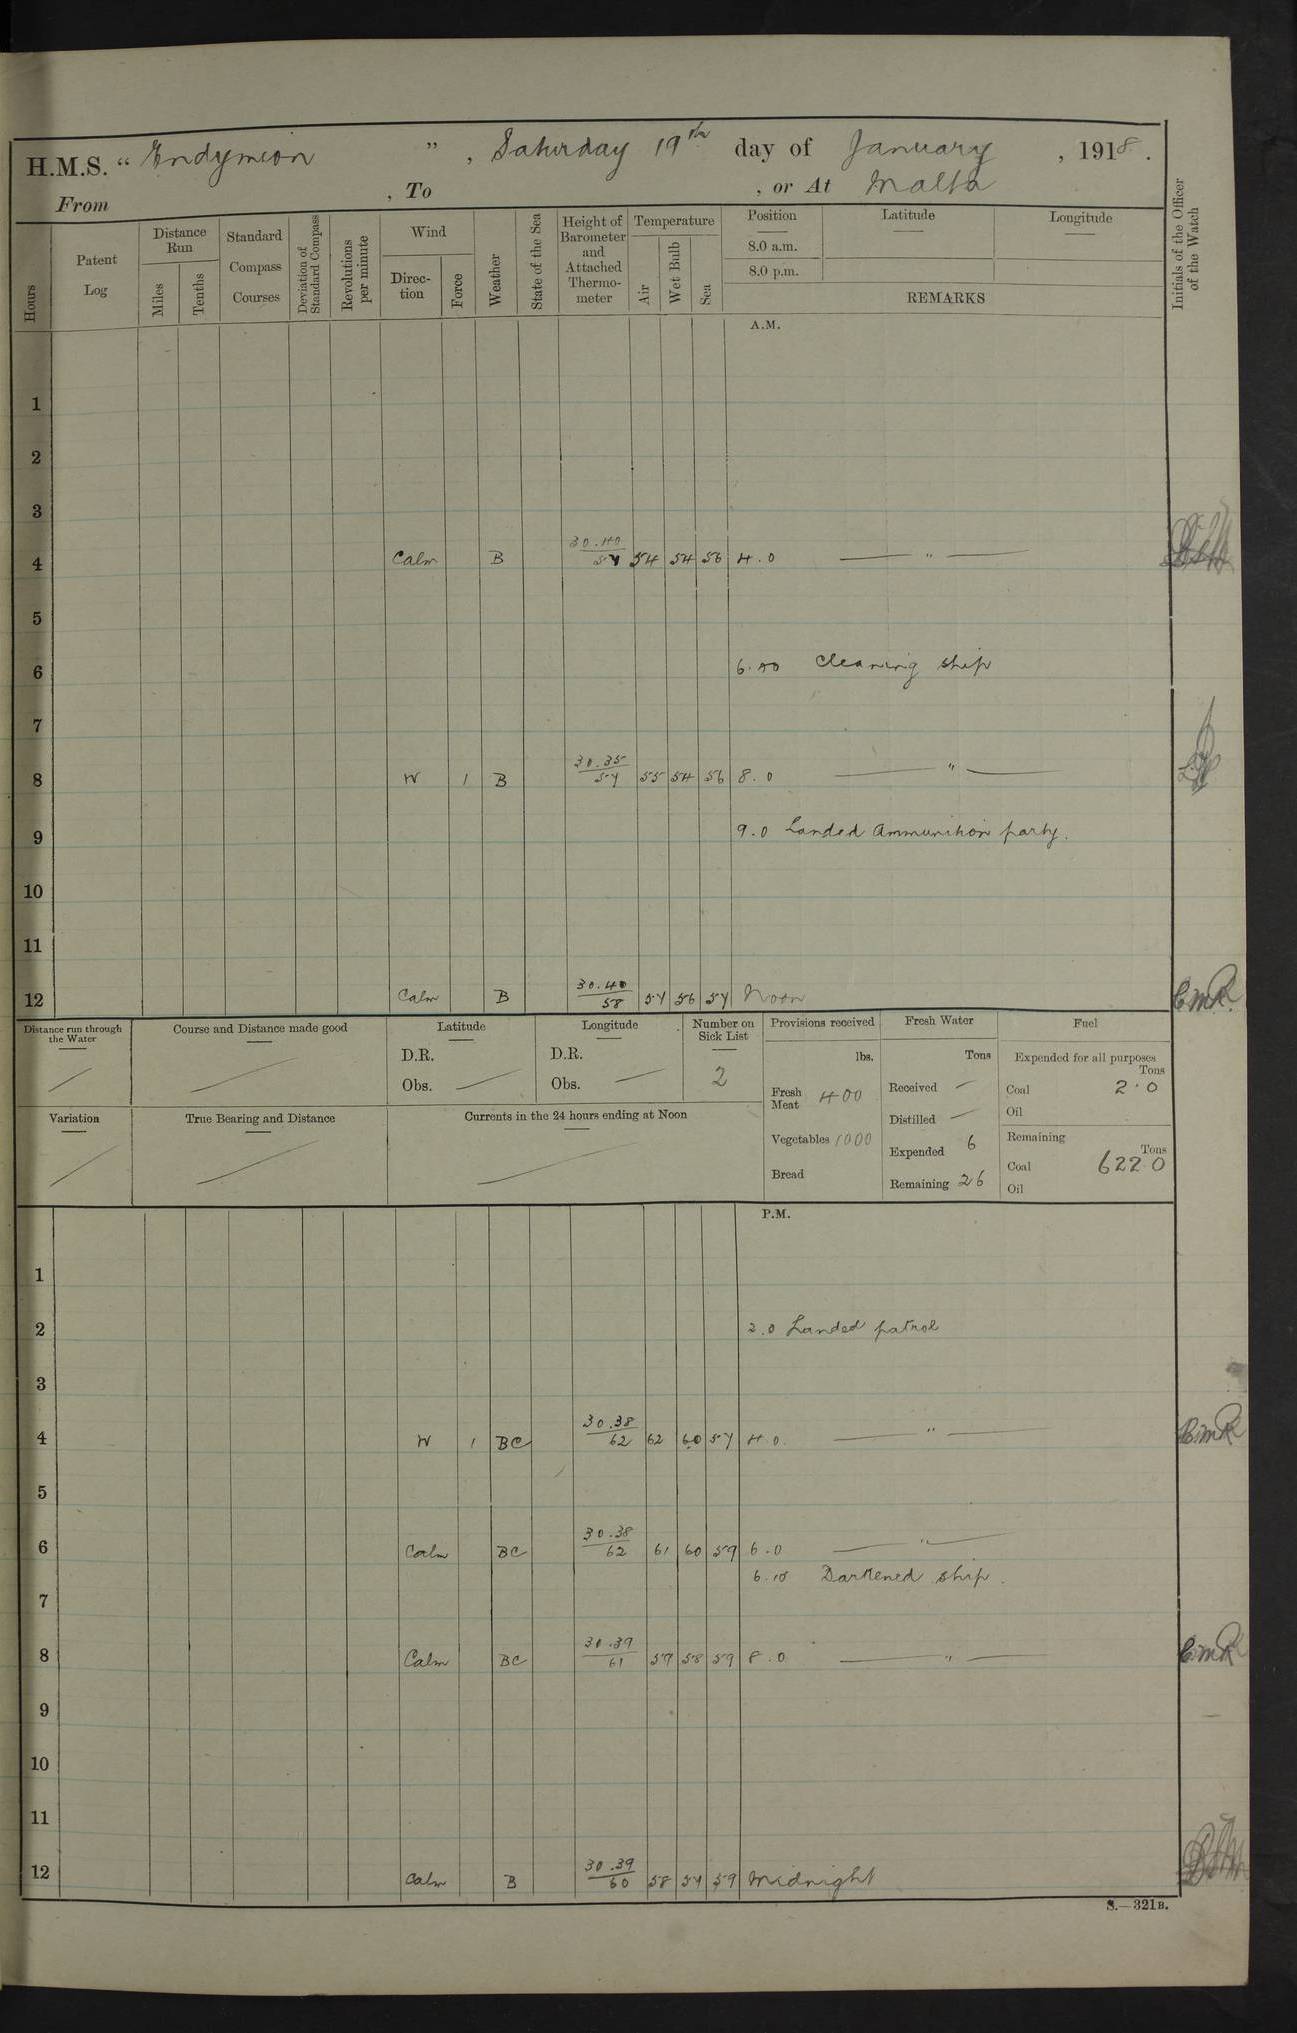 H.M.S. “ Endymion ” , Saturday 19th day of January , 1918 .
From , To , or At Malta
Hours
Patent Log
Distance Run
Miles
Tenths
Standard Compass Courses
Deviation of Standard Compass
Revolutions per minute
Wind
Direc-tion
Force
Weather
State of the Sea
Height of Barometer and Attached Thermo-meter
Temperature
Air
Wet Bulb
Sea
Position Latitude Longitude
8.0 a.m.
8.0 p.m.
REMARKS
Initials of the Officer of the Watch
A.M.
1
2
3
4 Calm B 30.40 57 54 54 56 4.0 — " —
5
6 6.00 Cleaning ship
7
8 W 1 B 30.35 57 55 54 56 8.0 — " —
9 9.0 Landed Ammunition party.
10
11
12 Calm B 30.40 58 57 56 57 Noon CMR
Distance run through the Water
Course and Distance made good
Latitude
D.R.
Obs. —
Longitude
D.R.
Obs. —
Number on Sick List
2
Provisions received
lbs.
Fresh Meat 400
Vegetables 1000
Bread
Fresh Water
Tons
Received —
Distilled —
Expended 6
Remaining 26
Fuel
Expended for all purposes
Tons
Coal 2.0
Oil
Remaining
Tons
Coal 622.0
Oil
Variation
True Bearing and Distance
Currents in the 24 hours ending at Noon
P.M.
1
2 2.0 Landed patrol
3
4 W 1 BC 30.38 62 62 60 57 4.0. — " — CMR
5
6 Calm BC 30.38 62 61 60 59 6.0 — " —
6.10 Darkened ship.
7
8 Calm BC 30.39 61 59 58 59 8.0 — " — CMR
9
10
11
12 Calm B 30.39 60 58 57 59 Midnight
S.—321B.